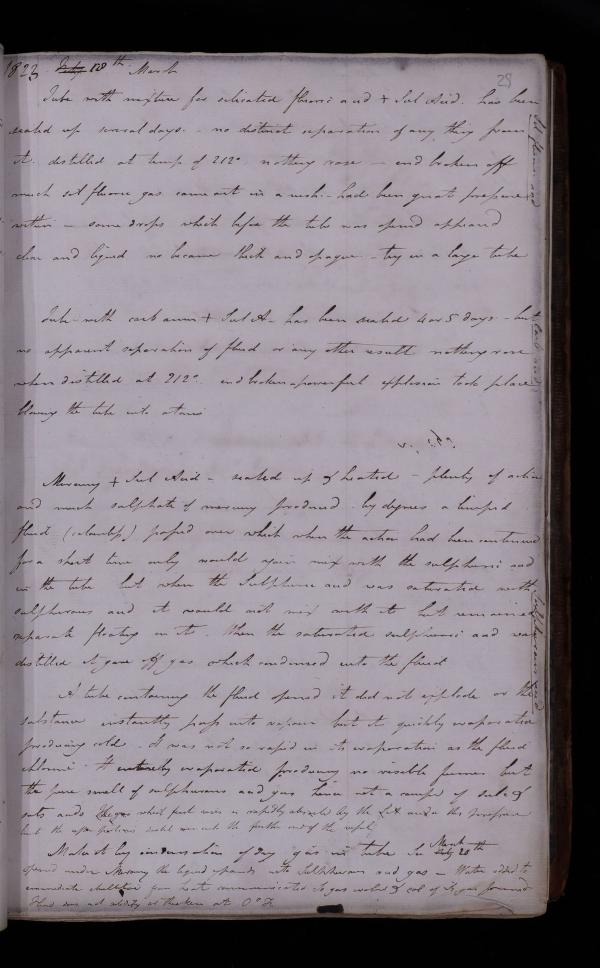 1823 July 18th March
29
Tube with mixture for silicated fluoric acid + Sul Acid. has been
sealed up several days. - no distinct separation of any thing from
it. distilled at temp of 212° nothing rose - end broken off
much sil fluoric gas came out in a rush - had been great pressure
within - some drops which before the tube was opened appeared
clear and liquid no became thick and opaque - try in a large tube
Tube with carb amm + Sul A - has been sealed 4 or 5 days - but
no apparent separation of fluid or any other result nothing rose
when distilled at 212°. end broken a powerful explosion took place
blowing the tube into atoms
Mercury + Sul Acid - sealed up & heated - plenty of action
and much sulphate of mercury produced by degrees a limpid
fluid (colourless) passed over which when the action had been continued
for a short time only would again mix with the sulphuric acid
in the tube but when the Sulphuric acid was saturated with
sulphurous acid it would not mix with it but remained
separate floating on it. When the saturated sulphuric acid was
distilled it gave off gas which condensed into the fluid
Sulphurous acid
A tube containing the fluid opened it did not explode or the
substance instantly pass into vapour but it quickly evaporated
producing cold. It was not so rapid in its evaporation as the fluid
chlorine. It entirely evaporated producing no visible fumes but
the pure smell of sulphurous acid gas leaving not a
The gas which first was is rapidly absorbed by the S.A. under this pressure
but the after portions
Make it by condensation of dry gas in tube &c March July 20th
opened under Mercury the liquid expands into Sulphurous acid gas - Water added to
immediate ebullition from heat communicated So gas evolved &
Fluid does not solidify or thicken at 0° F.